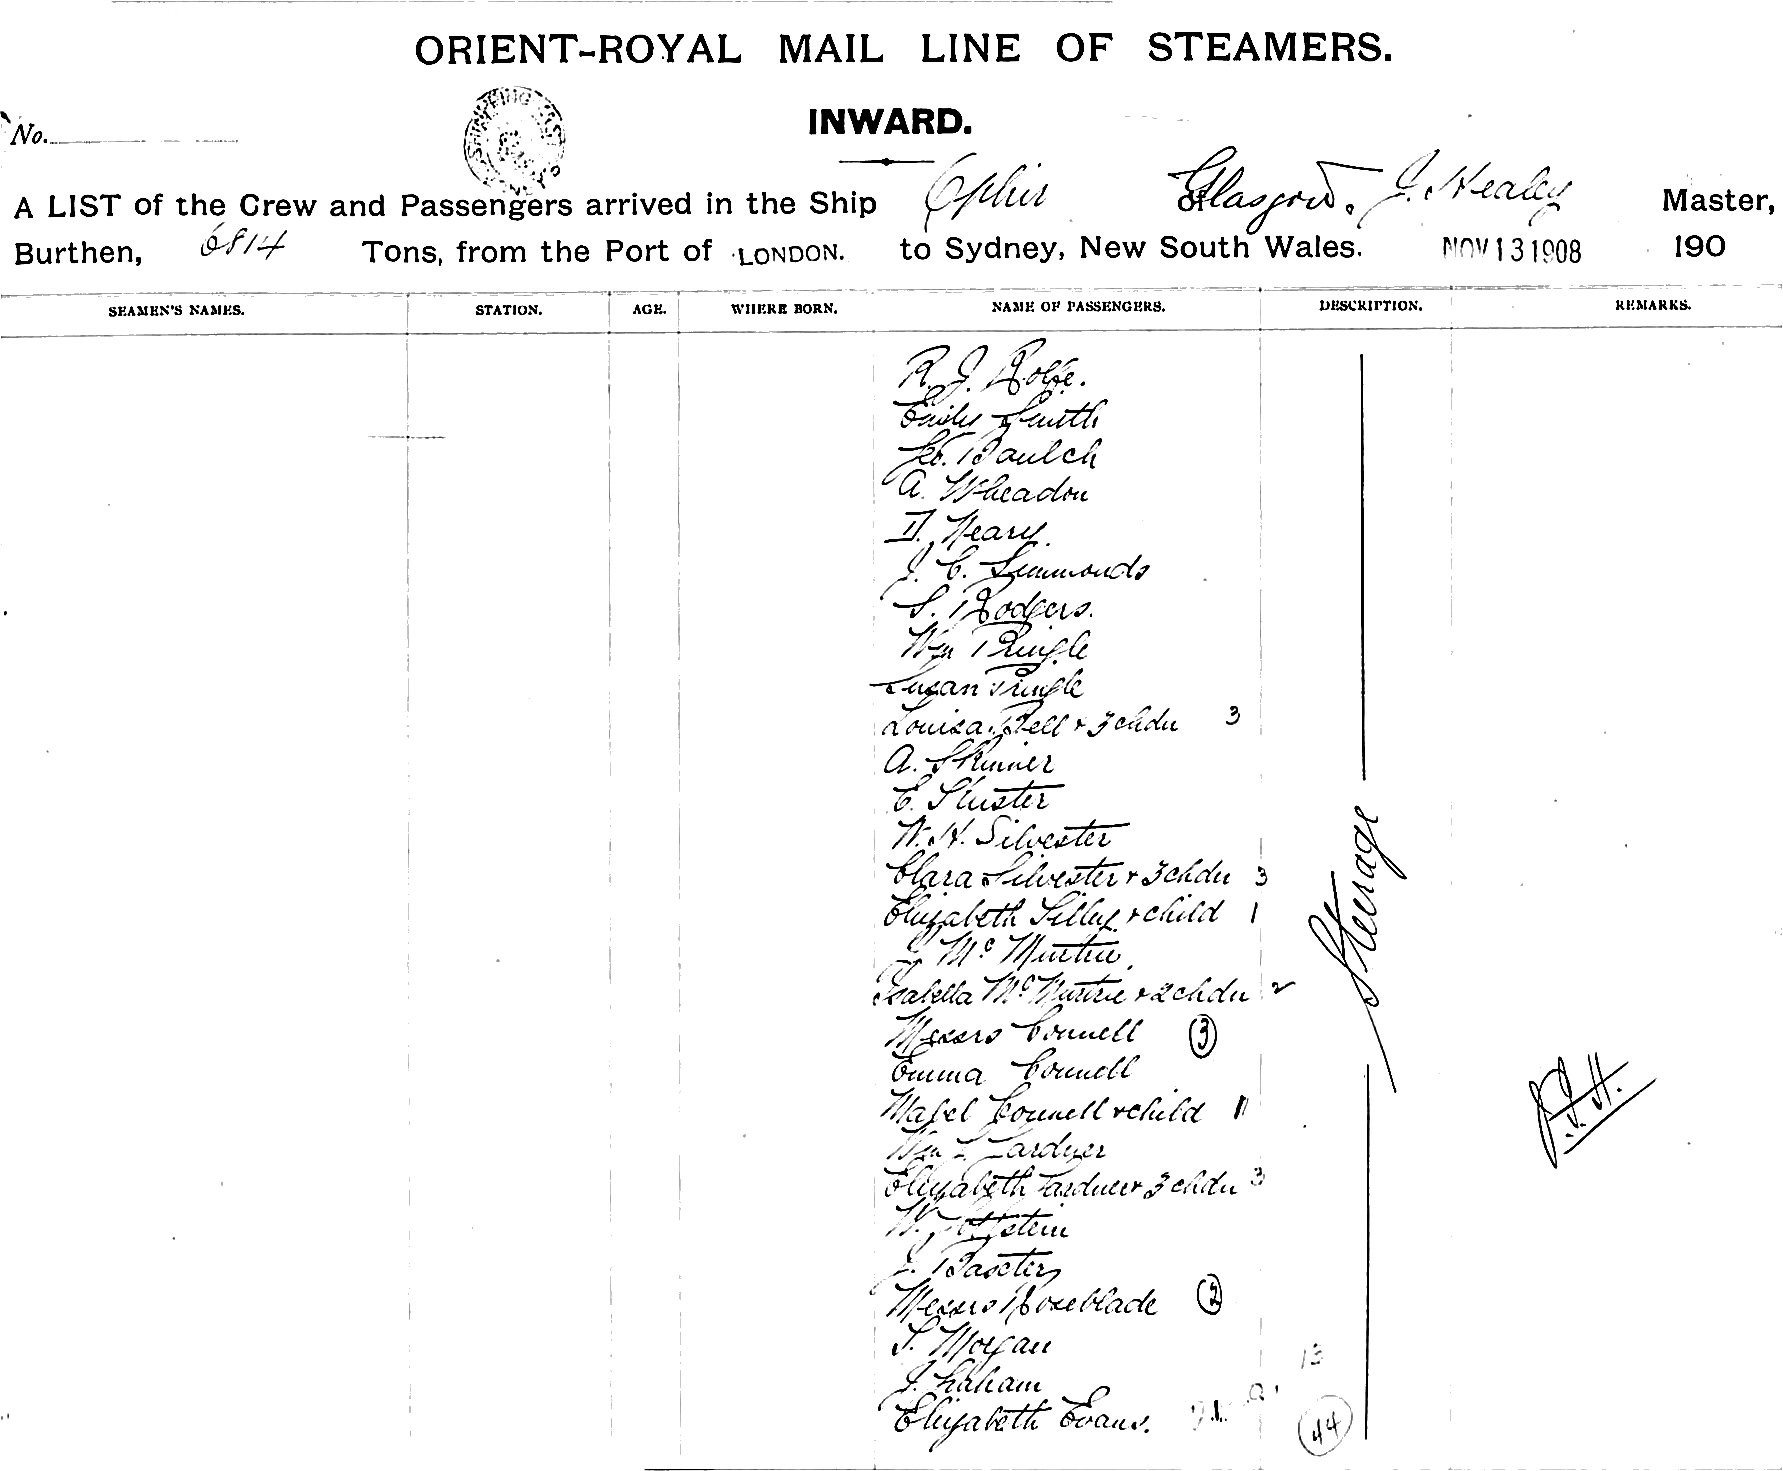 ORIENT-ROYAL MAIL LINE OF STEAMERS.
INWARD.
No.
A LIST of the Crew and Passengers arrived in the Ship Ophir Glasgow. J. Healey Master,
Burthen, 6814 Tons, from the Port of LONDON. to Sydney, New South Wales. NOV 13 1908 190
SEAMEN'S NAMES. STATION. AGE. WHERE BORN. NAME OF PASSENGERS. DESCRIPTION. REMARKS.
R. J. Rolfe.
Emily Smith
Geo. Baulch
A. Wheadon
D. Neary.
J. C. Simmonds
S. Rodgers.
Wm Pringle
Susan Pringle
Louisa Bell + 3 chdn 3
A. Skinner
E. Shuster
W. H. Silvester
Clara Silvester + 3 chdn 3
Elizabeth Silley + child 1
Mc Murtrie
Isabella Mc Murtrie + 2 chdn 2
Messrs Connell 3
Emma Connell
Mabel Connell + child 1
Wm Gardner
Elizabeth Gardner + 3 chdn 3
W.
J. Baxter
Messrs Roseblade 2
S. Morgan
J. Graham
Elizabeth Evans.
Steerage
13
44